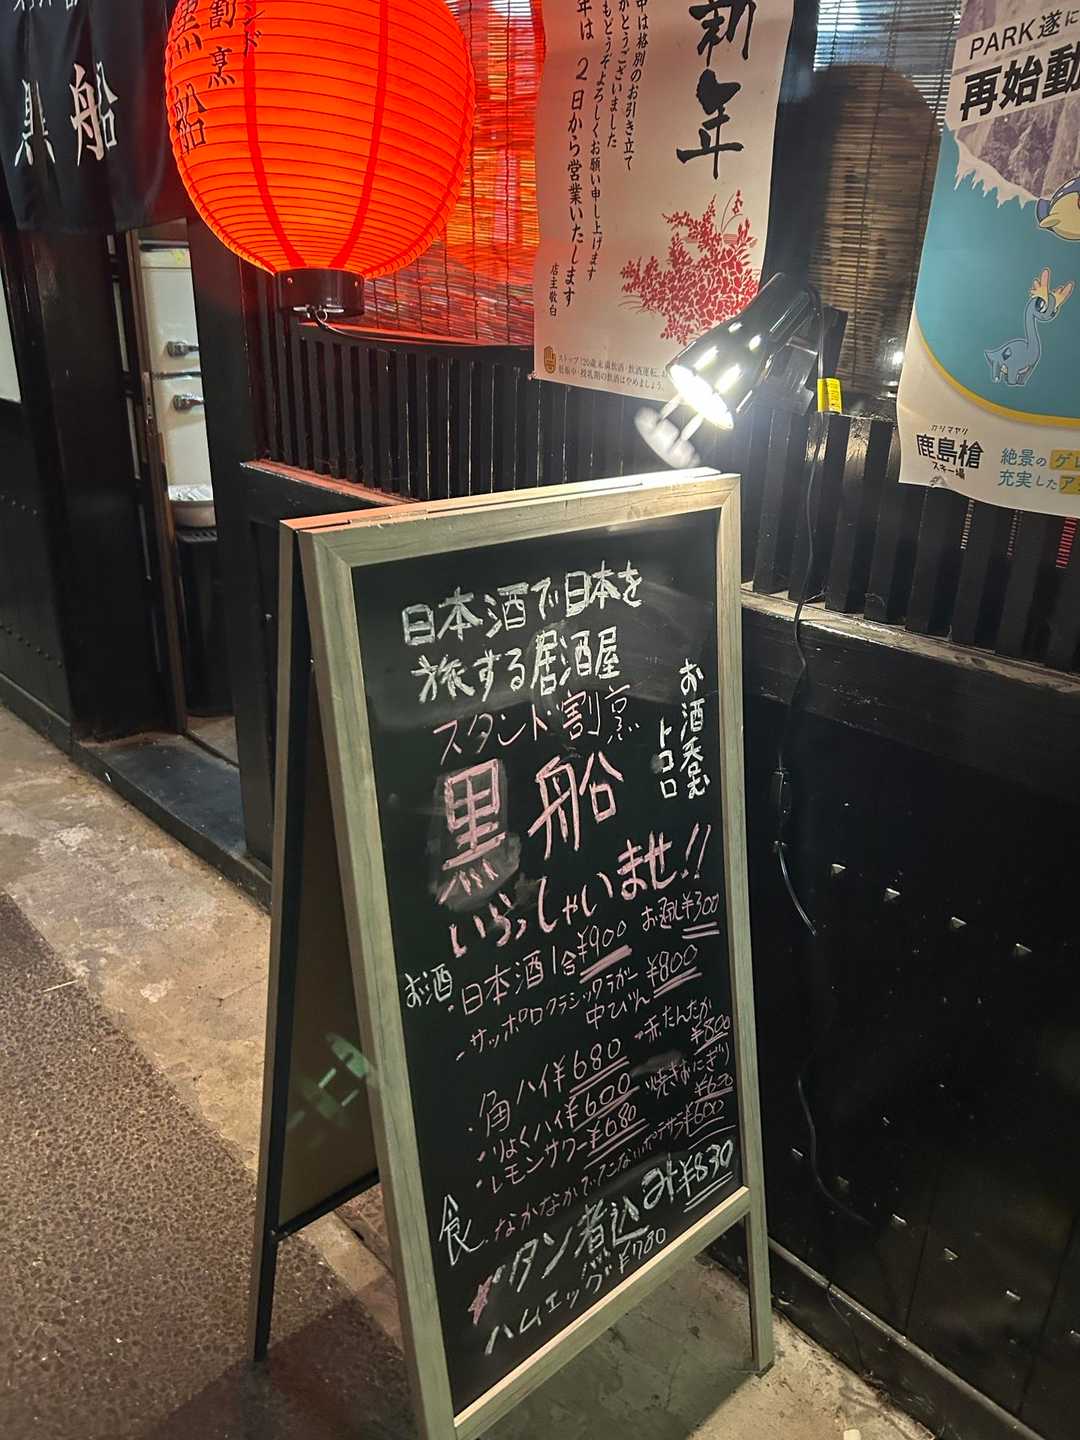 黒船
割烹
黒船
新年
中は格別のお引き立て
がとうございました
もどうぞよろしくお願い申し上げます
年は 2日から営業いたします
店主敬白
ストップ!20歳未満飲酒・飲酒運転。
妊娠中・授乳期の飲酒はやめましょう。
PARK遂に
再始動
カリマヤリ
鹿島槍
スキー場
絶景のゲレ
充実したア
日本酒で日本を
旅する居酒屋
スタンド割烹
黒船
お酒呑む
トコロ
いらっしゃいませ!!
お通し¥300
お酒
・日本酒1合¥900
・サッポロクラシックラガー
中びん ¥800
・角ハイ¥680
・りょくハイ¥600
・レモンサワー¥680
・赤たんたか
¥800
・焼きおにぎり
食
・なかなかでてこないポテサラ¥600
タン煮込み¥830
ハムエッグ¥780